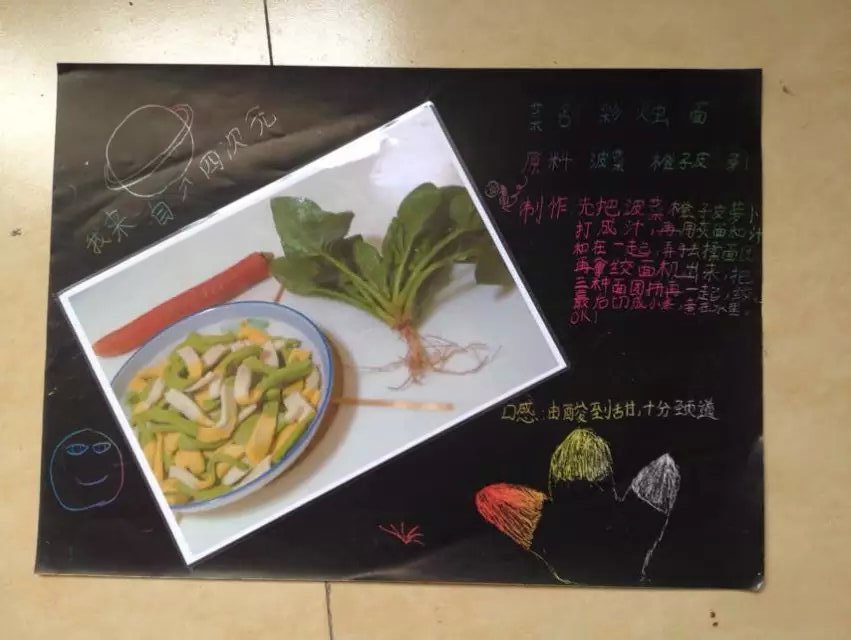 我来自个四次元
菜名 彩烛面
原料 波菜 橙子皮 萝卜
制作 先把波菜橙子皮萝卜
打成汁,再用皮面和汁
和在一起,弄法揉面
再拿绞面机出来,把
三种面团拼再一起,绞
最后切成小条
OK!
口感:由酸到甜,十分劲道